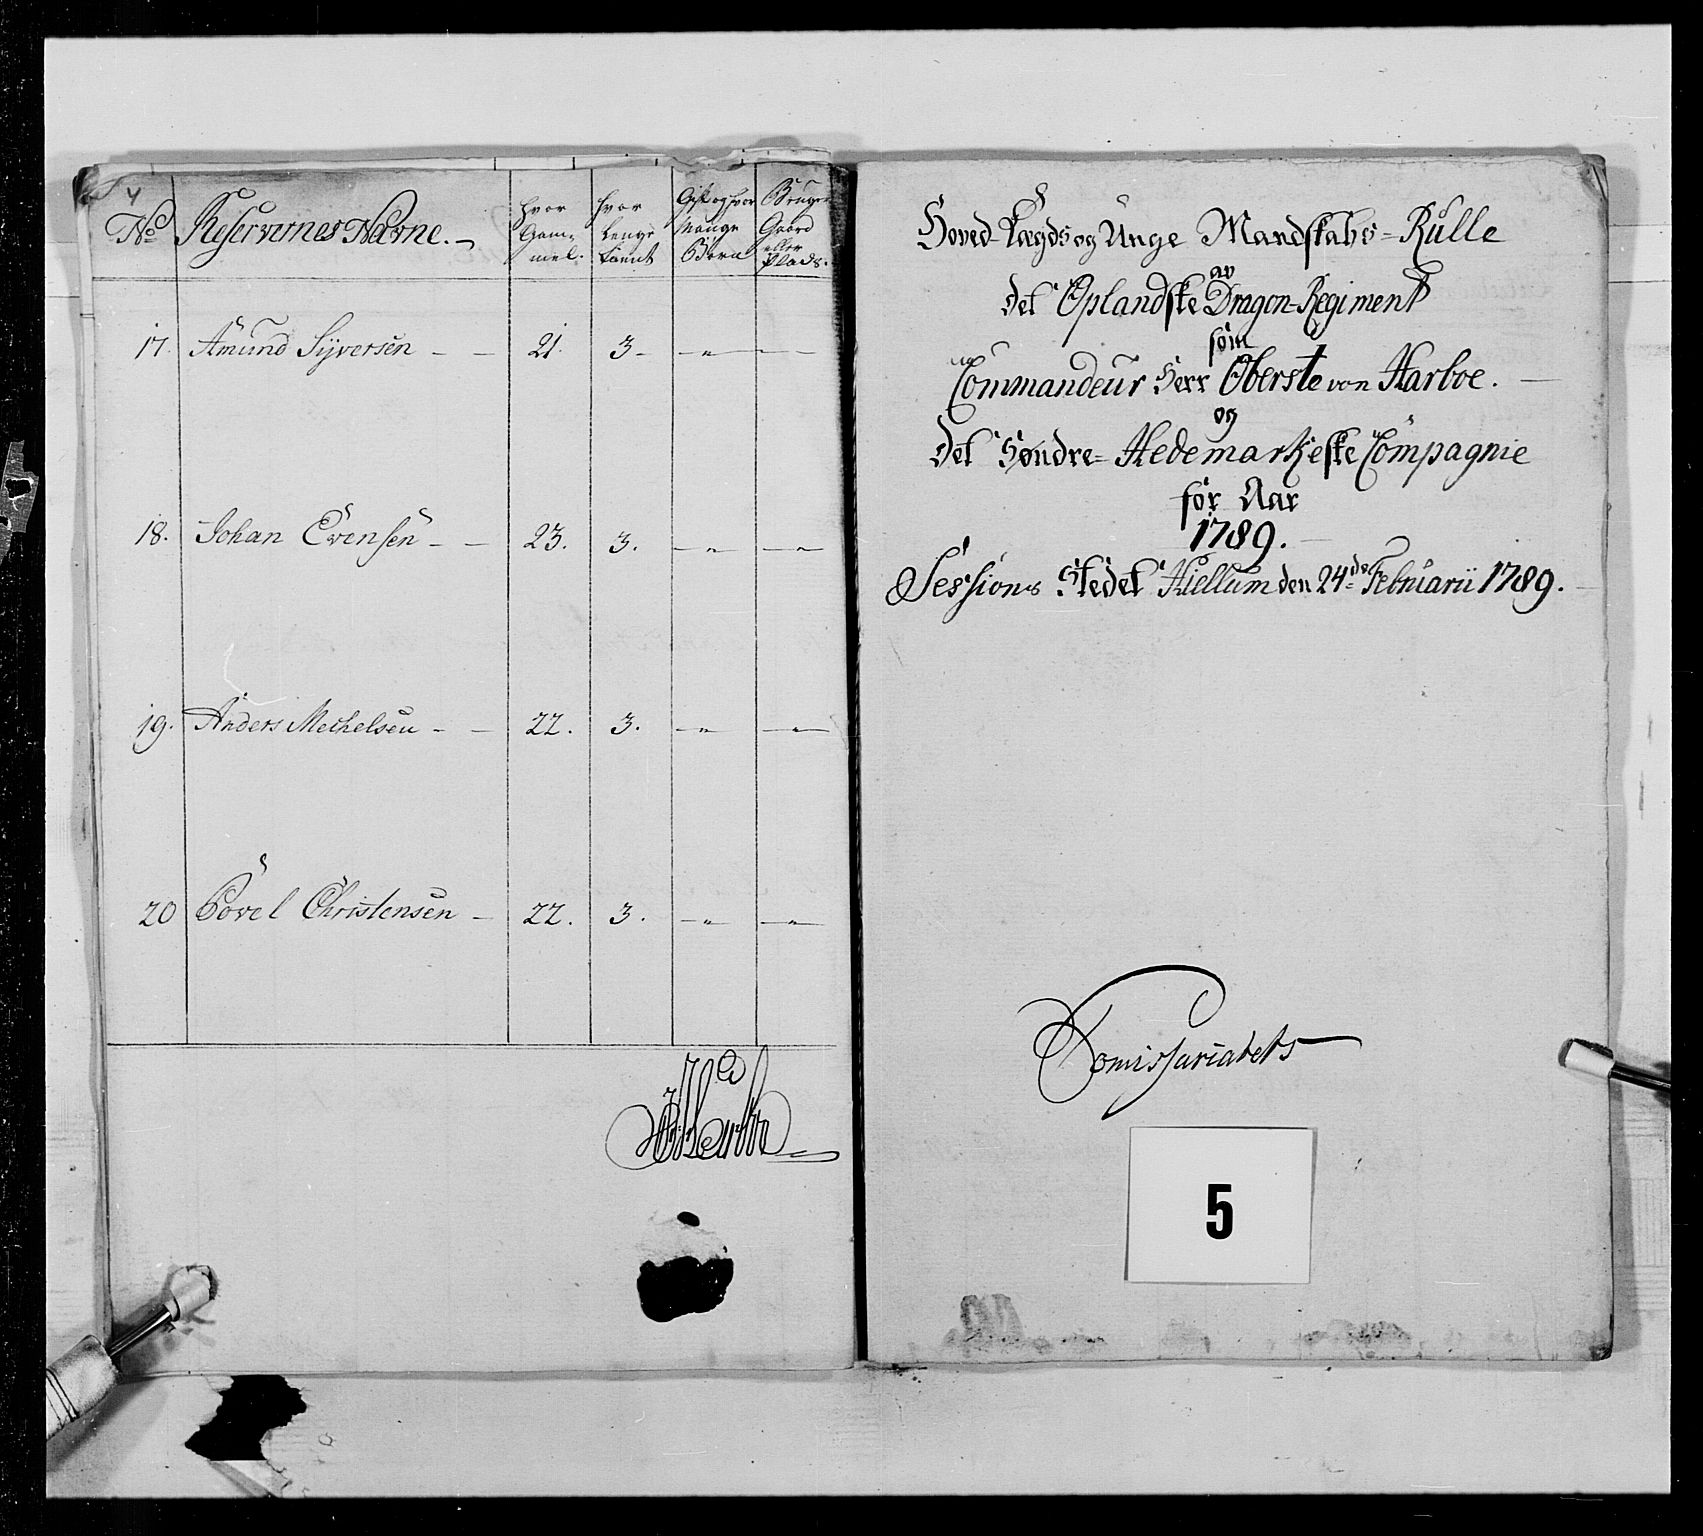 4
No Reservernes Navne. hvor Gam= mel. hvor lenge tient Gift og hvor Mange Börn Bruger Gaard eller Plads.
17. Amund Syversen - - 21. 3 - - " - - -
18. Johan Evensen - - 23. 3. - " - - " -
19. Anders Mechelsen - - 22. 3. - " - - " -
20 Povel Christensen - 22. 3. - " - - " -
Hoved- Lægds og Unge Mandskabs = Rulle
av
det Oplandske Dragon-Regiment
som
Commandeur Herr Oberste von Harboe. -
og
det Søndre= Hedemarkeske Compagnie
for Aar
1789.
Sessions Stedet Hiellum den 24de Februarii 1789.
Comissariatets
5